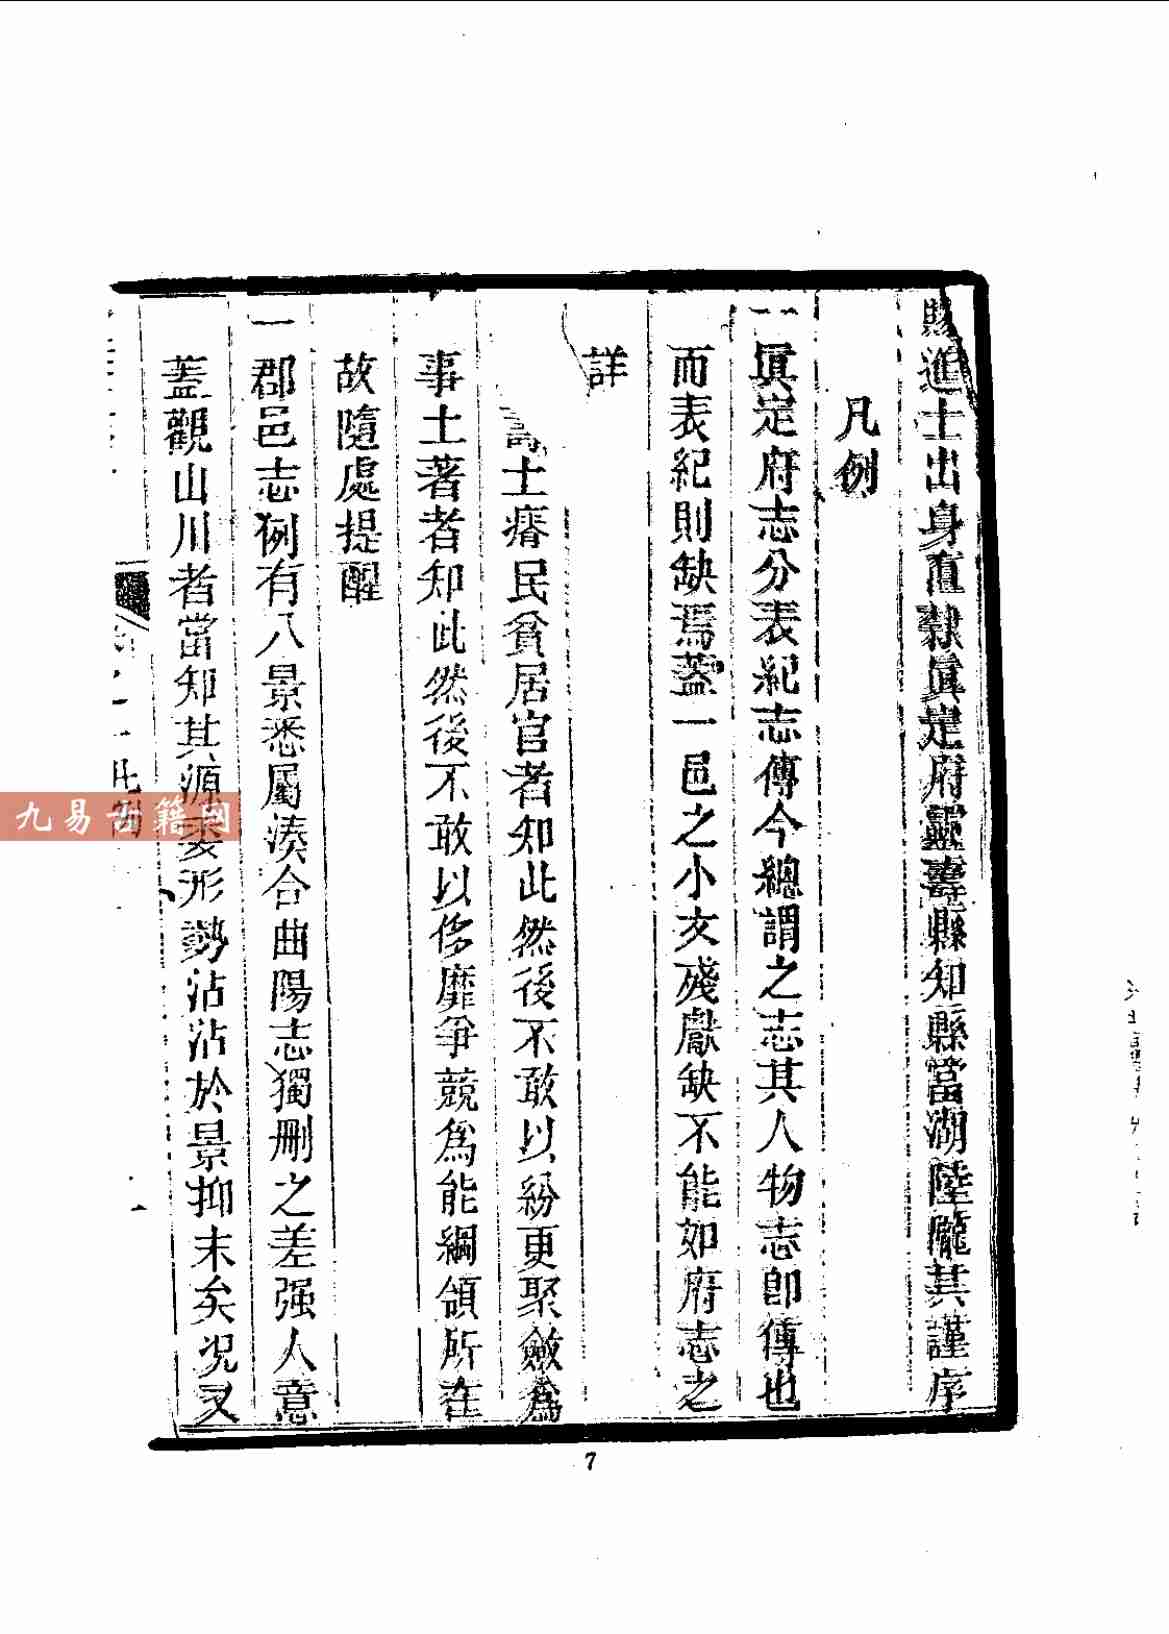 賜進士出身直隸眞定府靈壽縣知縣當湖陸隴其謹序
凡例
一眞定府志分表紀志傳今總謂之志其人物志卽傳也
而表紀則缺焉蓋一邑之小文殘獻缺不能如府志之
詳
壽土瘠民貧居官者知此然後不敢以紛更聚斂爲
事土著者知此然後不敢以侈靡爭競爲能綱領所在
故隨處提醒
一郡邑志例有八景悉屬湊合曲陽志獨刪之差强人意
蓋觀山川者當知其源委形勢沾沾於景抑末矣况又
凡例
九易古籍网
7